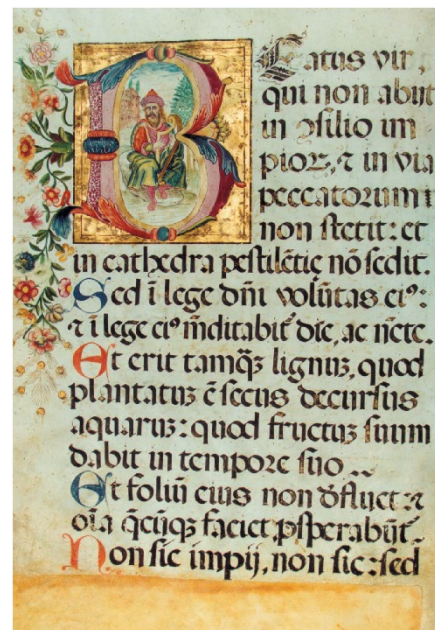 Beatus vir,
qui non abijt
in ꝯsilio im
pioꝝ, ⁊ in via
peccatorum
non stetit: et
in cathedra pestilẽtie nõ sedit.
Sed ĩ lege dñi volũtas eiꝰ:
⁊ ĩ lege eiꝰ mẽditabit die, ac nõcte.
Et erit tamqȝ lignuȝ, quod
plantatuȝ ẽ secus decursus
aquaruȝ: quod fructuȝ suum
dabit in tempore suo
Et foliũ eius non defluet: ⁊
oĩa q̃cũqȝ faciet ꝓsperabũt.
Non sic impij, non sic: sed